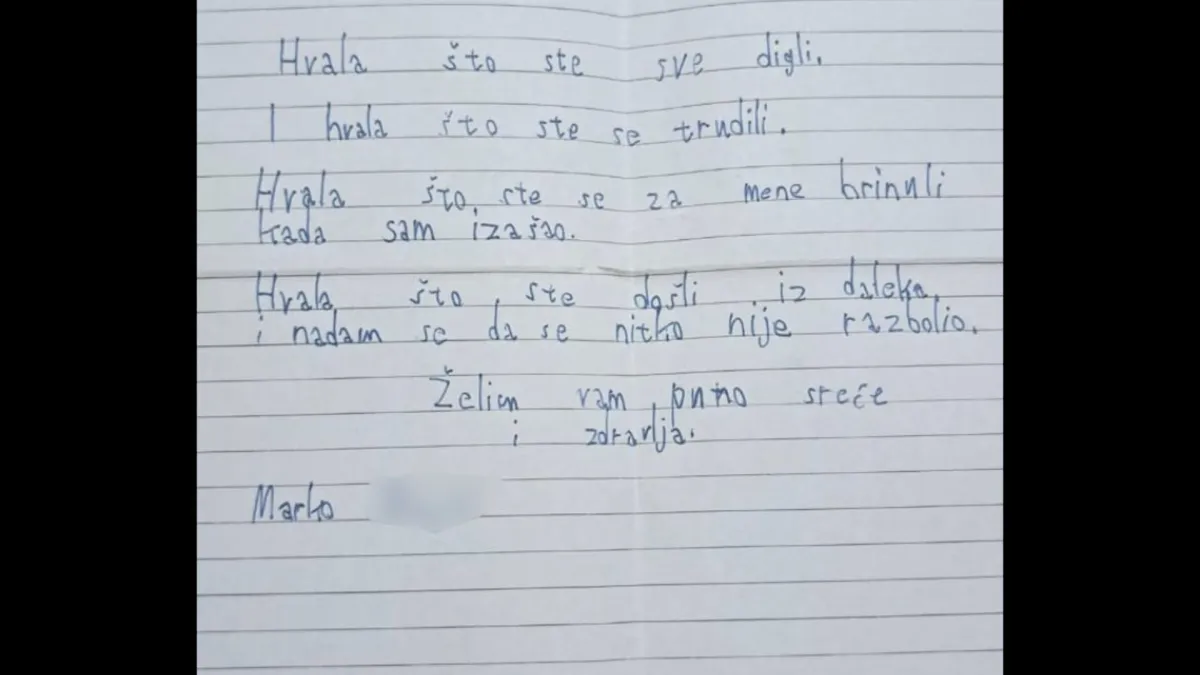 Hvala što ste sve digli.
I hvala što ste se trudili.
Hvala što, ste se za mene brinuli
kada sam izašao.
Hvala što, ste došli iz daleka,
i nadam se da se nitko nije razbolio.
Želim vam puno sreće
i zdravlja.
Marko